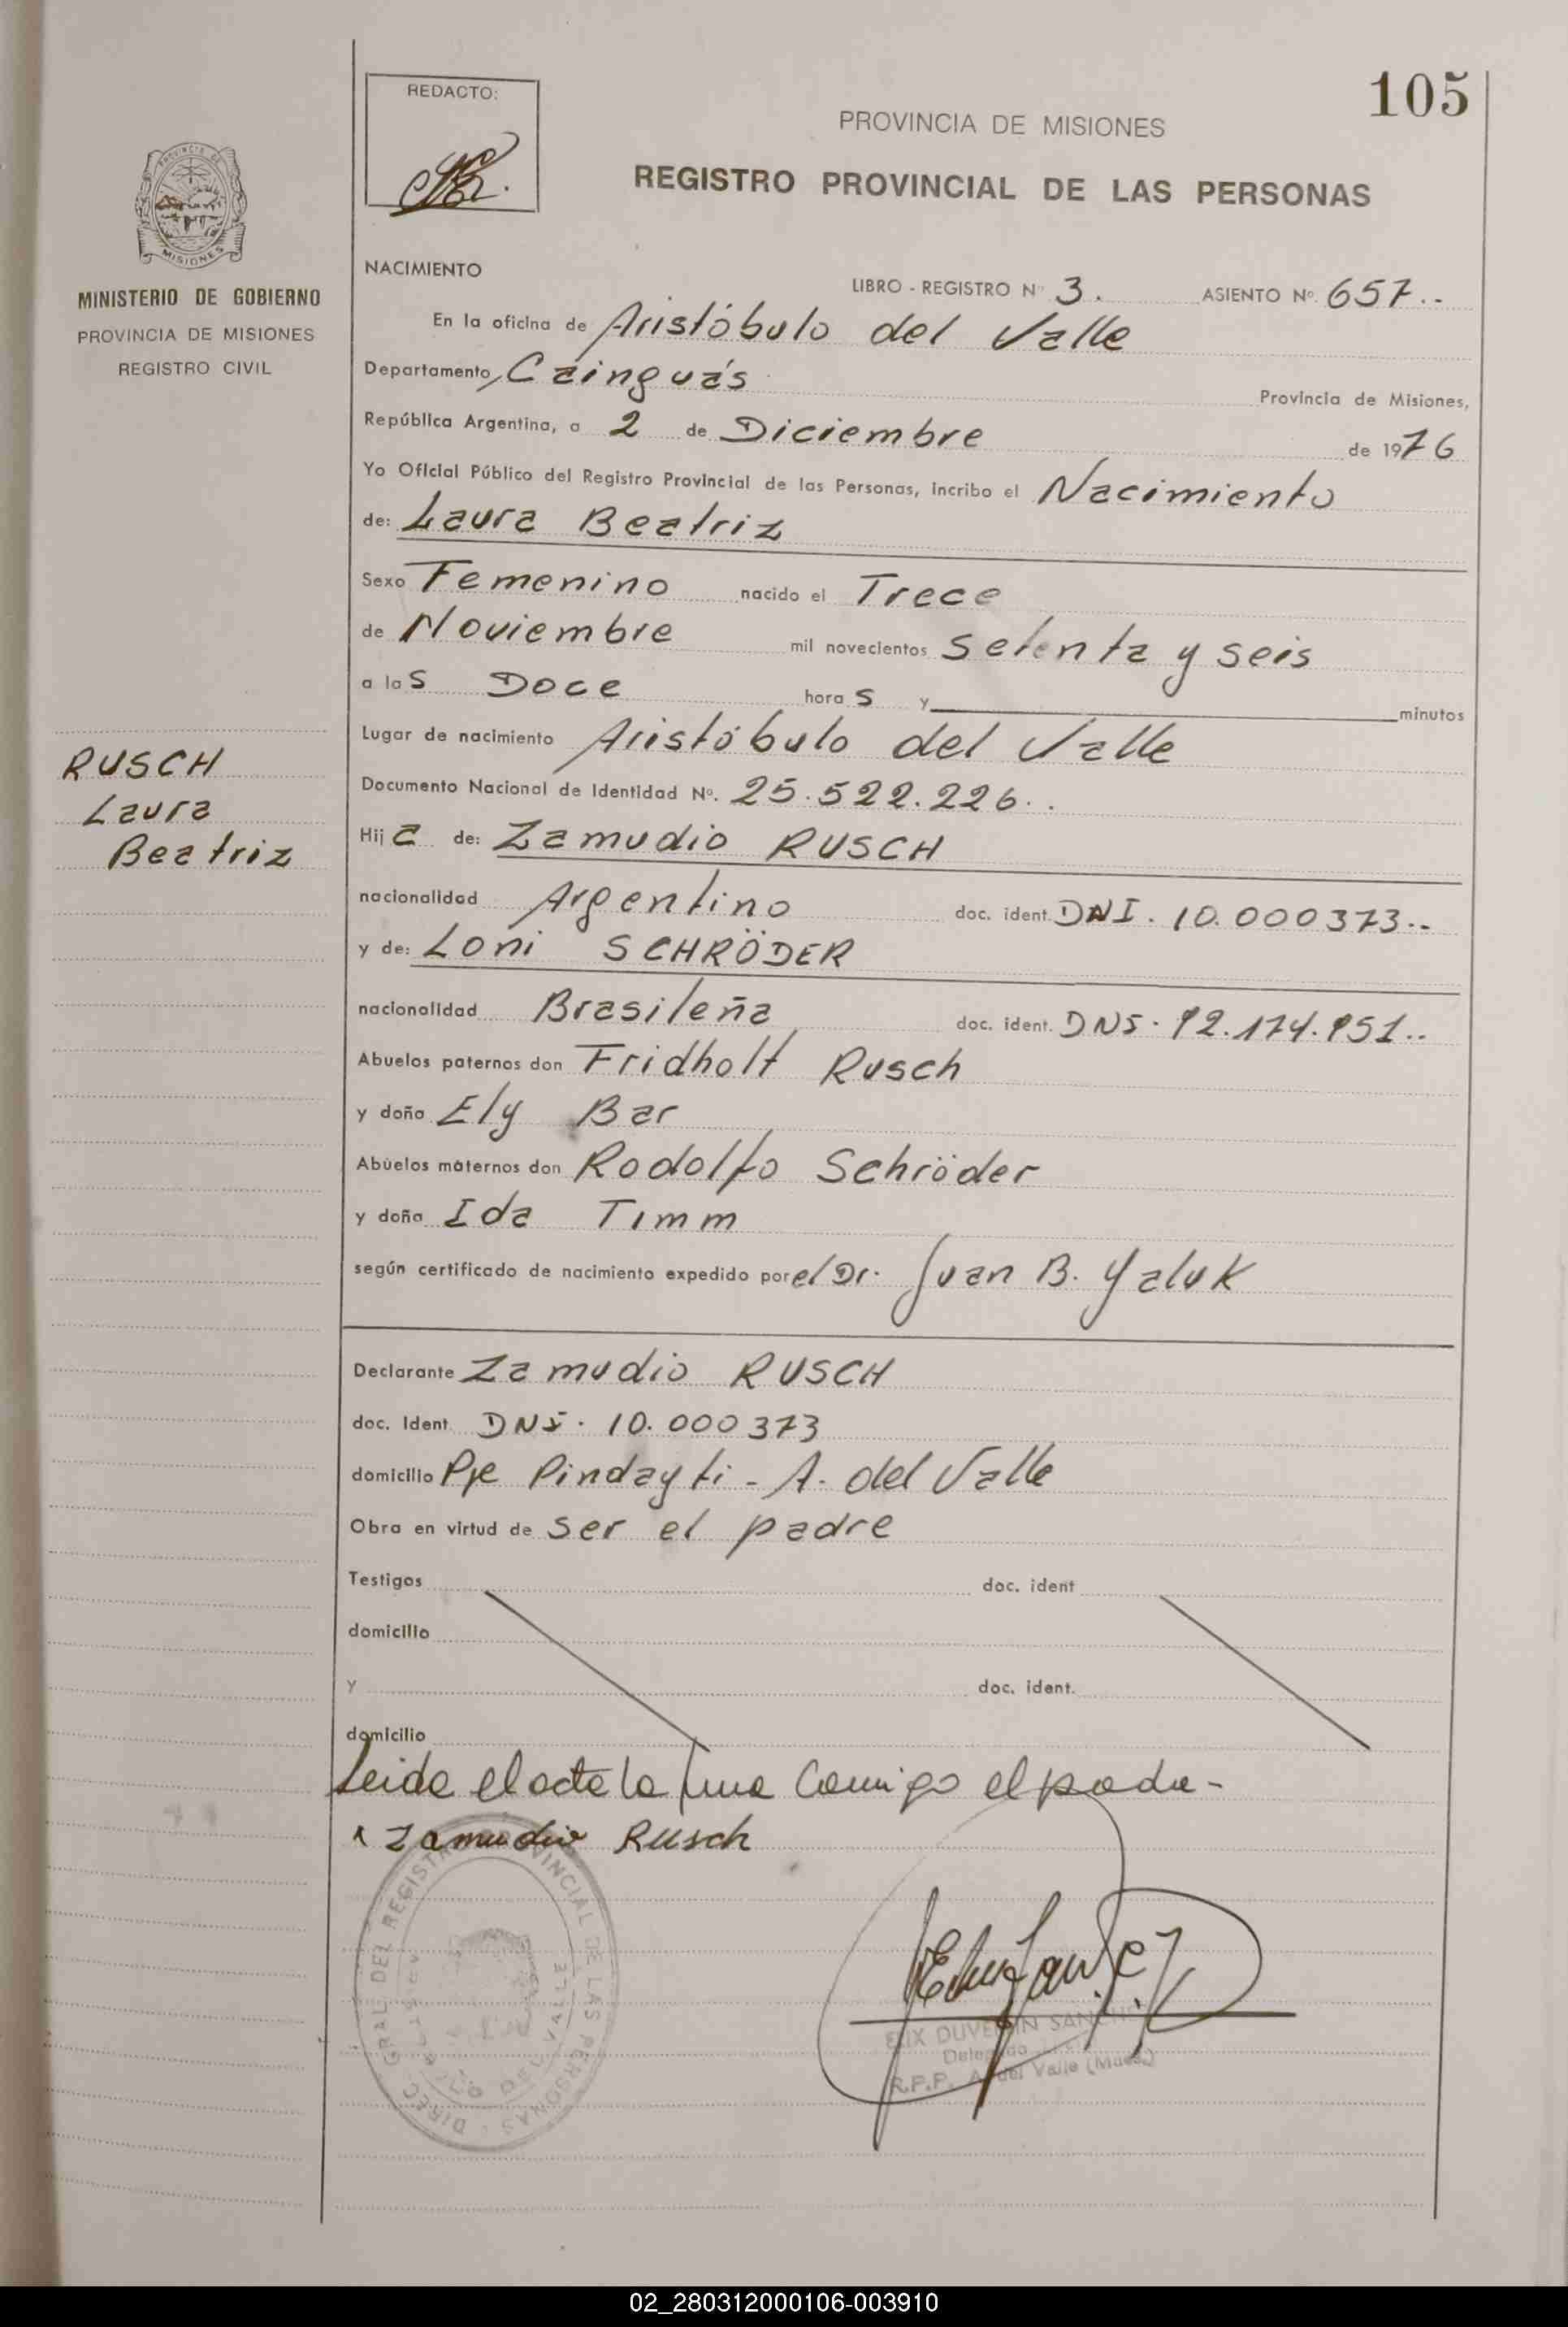 105
REDACTO:
PROVINCIA DE MISIONES
REGISTRO PROVINCIAL DE LAS PERSONAS
PROVINCIA DE
MISIONES
MINISTERIO DE GOBIERNO
PROVINCIA DE MISIONES
REGISTRO CIVIL
RUSCH
Laura
Beatriz
NACIMIENTO
LIBRO - REGISTRO Nº 3. ASIENTO Nº. 657..
En la oficina de Aristóbulo del Valle
Departamento, Cainguás Provincia de Misiones,
República Argentina, a 2 de Diciembre de 1976
Yo Oficial Público del Registro Provincial de las Personas, incribo el Nacimiento
de: Laura Beatriz
Sexo Femenino nacido el Trece
de Noviembre mil novecientos setenta y seis
a las Doce horas y minutos
Lugar de nacimiento Aristóbulo del Valle
Documento Nacional de Identidad Nº. 25.522.226..
Hija de: Zamudio RUSCH
nacionalidad Argentino doc. ident. DNI. 10.000373..
y de: Loni SCHRÖDER
nacionalidad Brasileña doc. ident. DNI. 92.174.951..
Abuelos paternos don Fridholt Rusch
y doña Ely Bar
Abuelos maternos don Rodolfo Schröder
y doña Ida Timm
según certificado de nacimiento expedido por el Dr. Juan B. Yaluk
Declarante Zamudio RUSCH
doc. Ident. DNI. 10.000373
domicilio Pje Pindayti - A. del Valle
Obra en virtud de ser el padre
Testigos doc. ident
domicilio
y doc. ident.
domicilio
Leida el acta la firma Comigo el padre-
Zamudio Rusch
DIREC. GRAL. DEL REGISTRO PROVINCIAL DE LAS PERSONAS
DEL VALLE
DUVE SAN
Delegado
R.P.P. A. del Valle (Mnes.)
02_280312000106-003910